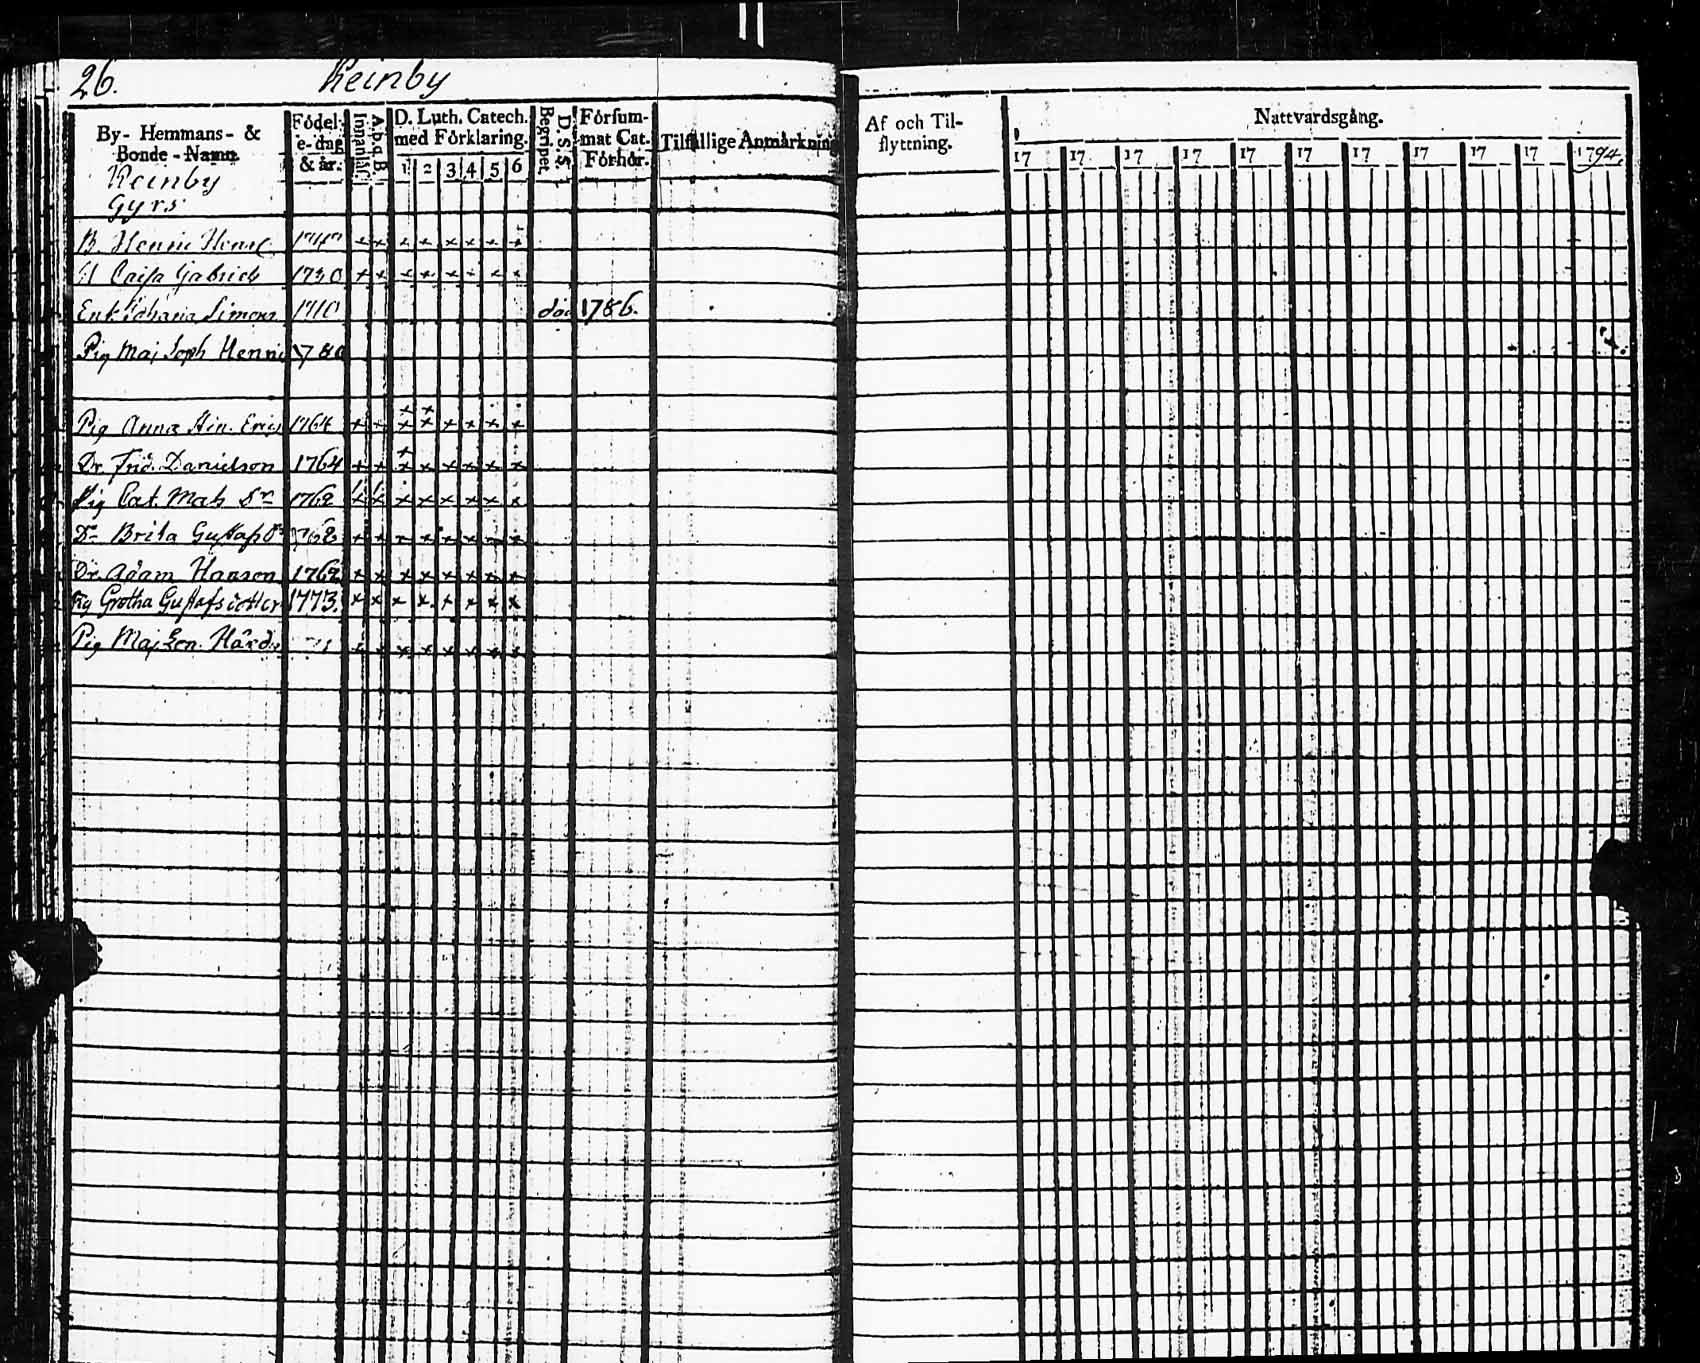 26. Keinby
By- Hemmans- &
Bonde-Namn.
Födel-
e-dag
& år.
A.b.d.B.
Innanläs.
D. Luth. Catech.
med Förklaring.
1 2 3 4 5 6
D. S. S.
Begripet
Försum-
mat Cat.
Förhör.
Tilfällige Anmärkning
Af och Til-
flyttning.
Nattvardsgång.
17 17 17 17 17 17 17 17 17 17 1794.
Keinby
Gyrs
B. Henric Henric
H Caisa Gabriels 1730
Enk. Simons 1710 död 1786.
Pig Maj Soph Henric 1780
Pig Anna Erics 1764
Dr. Frid. Danielson 1764
Pig Cat. Mats Dr 1762
Do Brita Gustafs
Dr. Adam Hanson 1762
Pig Gretha Gustafsdotter 1773.
Pig Maj Len. Hård